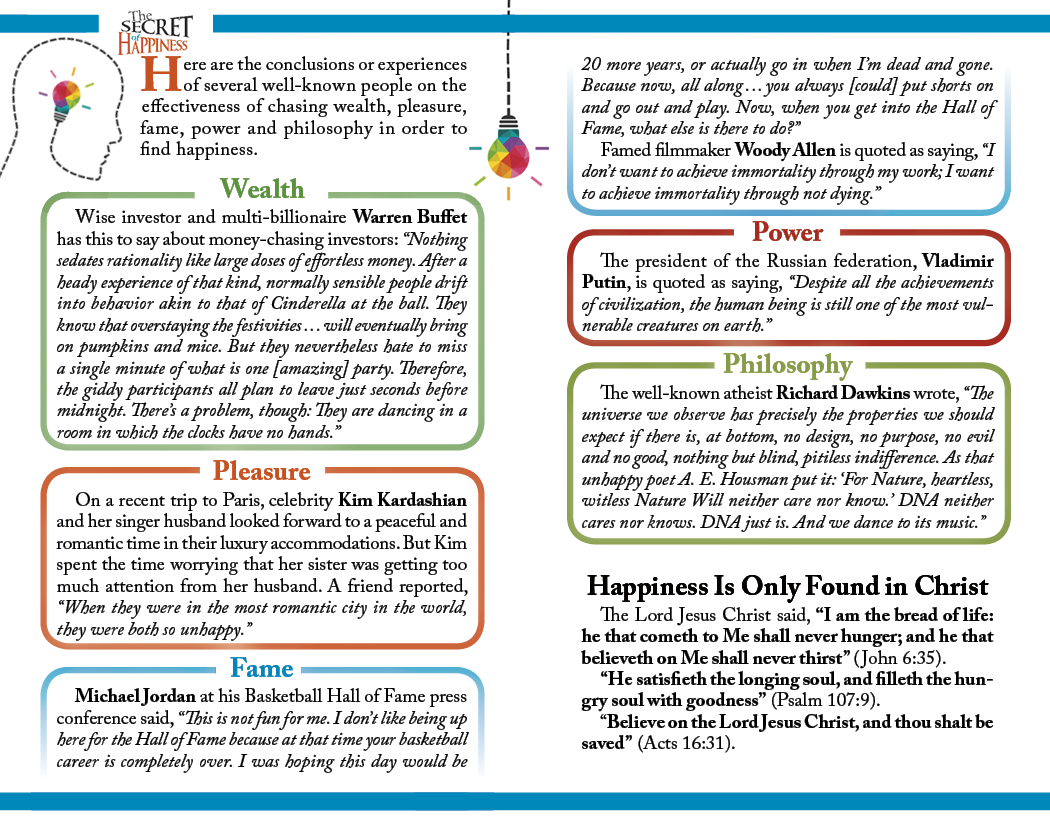 The
SECRET
of
HAPPINESS
Here are the conclusions or experiences
of several well-known people on the
effectiveness of chasing wealth, pleasure,
fame, power and philosophy in order to
find happiness.
Wealth
Wise investor and multi-billionaire Warren Buffet
has this to say about money-chasing investors: “Nothing
sedates rationality like large doses of effortless money. After a
heady experience of that kind, normally sensible people drift
into behavior akin to that of Cinderella at the ball. They
know that overstaying the festivities… will eventually bring
on pumpkins and mice. But they nevertheless hate to miss
a single minute of what is one [amazing] party. Therefore,
the giddy participants all plan to leave just seconds before
midnight. There’s a problem, though: They are dancing in a
room in which the clocks have no hands.”
Pleasure
On a recent trip to Paris, celebrity Kim Kardashian
and her singer husband looked forward to a peaceful and
romantic time in their luxury accommodations. But Kim
spent the time worrying that her sister was getting too
much attention from her husband. A friend reported,
“When they were in the most romantic city in the world,
they were both so unhappy.”
Fame
Michael Jordan at his Basketball Hall of Fame press
conference said, “This is not fun for me. I don’t like being up
here for the Hall of Fame because at that time your basketball
career is completely over. I was hoping this day would be
20 more years, or actually go in when I’m dead and gone.
Because now, all along…you always [could] put shorts on
and go out and play. Now, when you get into the Hall of
Fame, what else is there to do?”
Famed filmmaker Woody Allen is quoted as saying, “I
don’t want to achieve immortality through my work; I want
to achieve immortality through not dying.”
Power
The president of the Russian federation, Vladimir
Putin, is quoted as saying, “Despite all the achievements
of civilization, the human being is still one of the most vul-
nerable creatures on earth.”
Philosophy
The well-known atheist Richard Dawkins wrote, “The
universe we observe has precisely the properties we should
expect if there is, at bottom, no design, no purpose, no evil
and no good, nothing but blind, pitiless indifference. As that
unhappy poet A. E. Housman put it: ‘For Nature, heartless,
witless Nature Will neither care nor know.’ DNA neither
cares nor knows. DNA just is. And we dance to its music.”
Happiness Is Only Found in Christ
The Lord Jesus Christ said, “I am the bread of life:
he that cometh to Me shall never hunger; and he that
believeth on Me shall never thirst” (John 6:35).
“He satisfieth the longing soul, and filleth the hun-
gry soul with goodness” (Psalm 107:9).
“Believe on the Lord Jesus Christ, and thou shalt be
saved” (Acts 16:31).